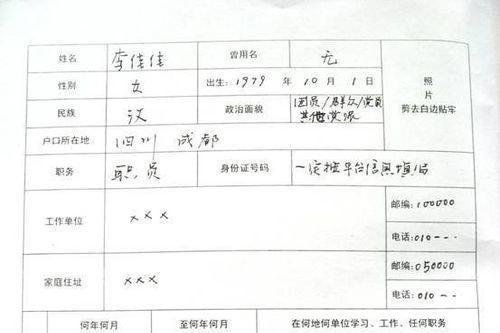 姓名 李佳佳 曾用名 无
性别 女 出生：1979 年 10 月 1 日
照片
剪去白边贴牢
民族 汉 政治面貌 团员/群众/党员
其他党派
户口所在地 四川 成都
职务 职员 身份证号码 一定按平台信息填写
工作单位 ××× 邮编：100000
电话：010---
家庭住址 ××× 邮编：050000
电话：010---
何年何月 至何年何月 在何地何单位学习、工作、任何职务